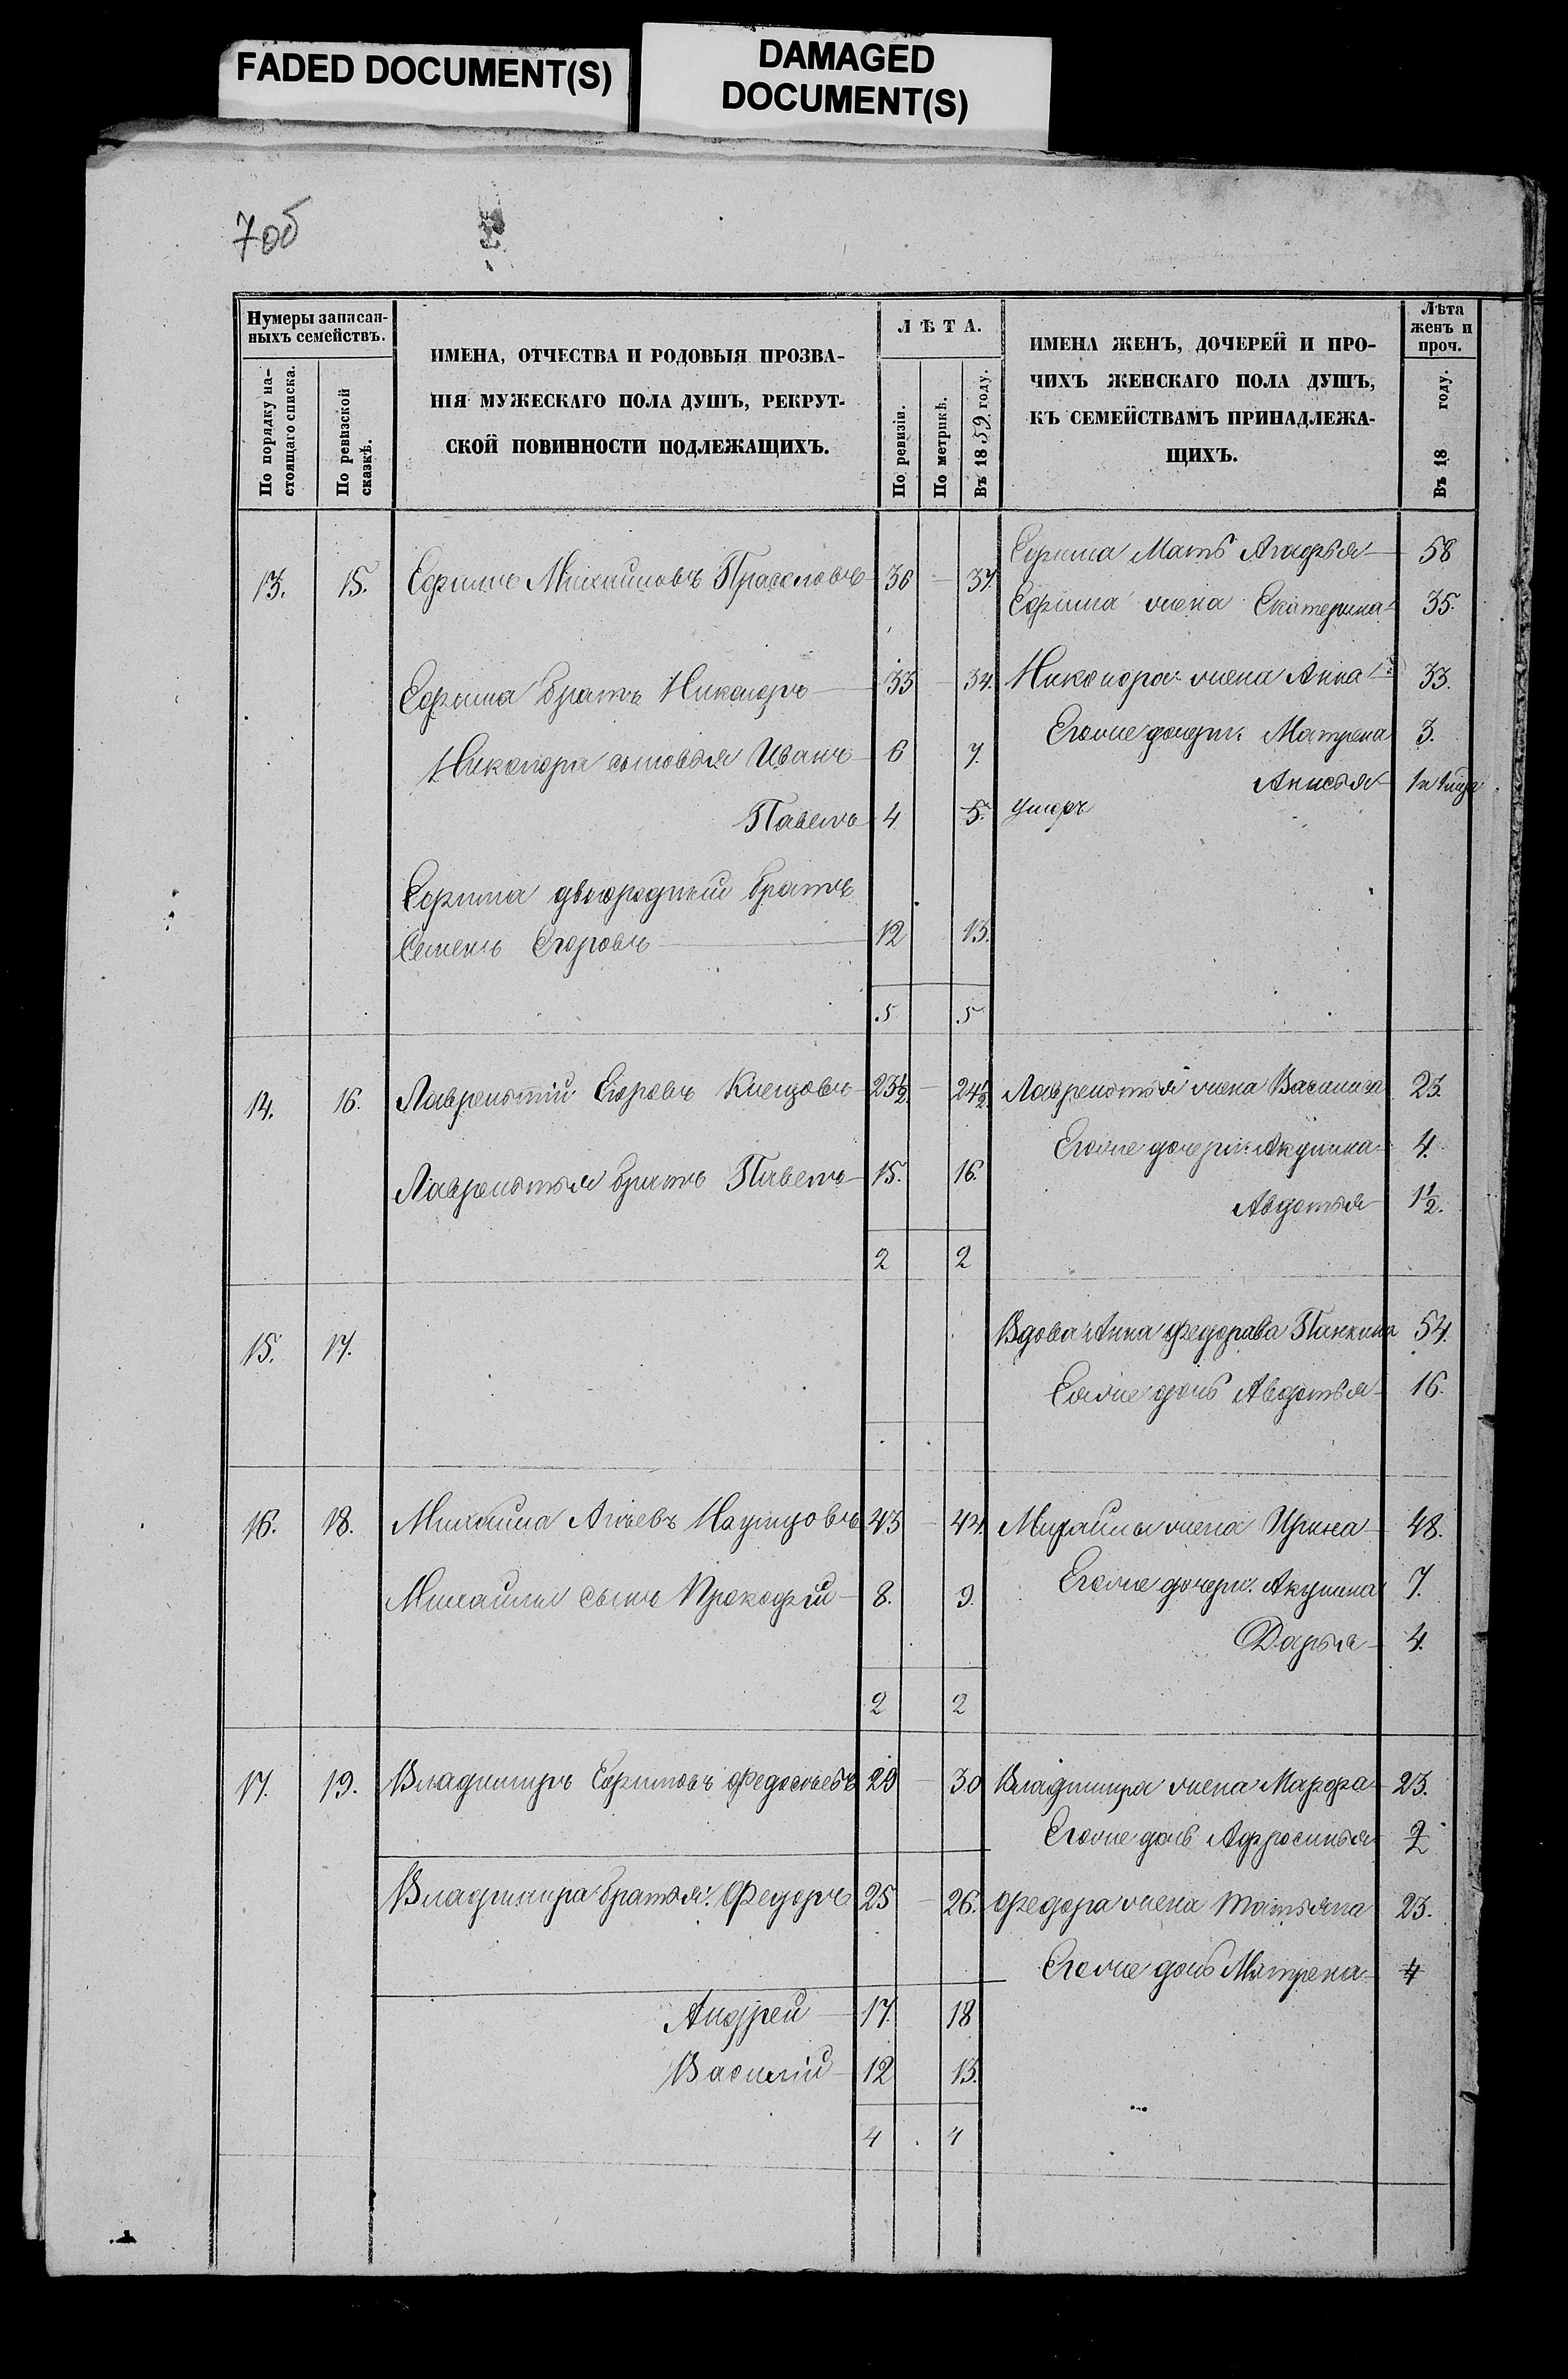 FADED DOCUMENT(S)
DAMAGED
DOCUMENT(S)
7об
Нумеры записан-
ныхъ семействъ.
По порядку на-
стоящаго списка.
По ревизской
сказкѣ.
ИМЕНА, ОТЧЕСТВА И РОДОВЫЯ ПРОЗВА-
НІЯ МУЖЕСКАГО ПОЛА ДУШЪ, РЕКРУТ-
СКОЙ ПОВИННОСТИ ПОДЛЕЖАЩИХЪ.
ЛѢТА.
По ревизіи.
По метрикѣ.
Въ 1859 году.
ИМЕНА ЖЕНЪ, ДОЧЕРЕЙ И ПРО-
ЧИХЪ ЖЕНСКАГО ПОЛА ДУШЪ,
КЪ СЕМЕЙСТВАМЪ ПРИНАДЛЕЖА-
ЩИХЪ.
Лѣта
женъ и
проч.
Въ 18 году.
Ефима Мать Агафья 58
13. 15. Ефимъ Михайловъ 36 37.
Ефима жена Екатерина 35.
Ефима братъ Никоноръ 33 34. Никонора жена Анна 33.
Егоже дочери: Матрена 3.
Никонора сыновья Иванъ 6 7.
Анисья
Павелъ 4 5. умеръ
Ефима двоюродный братъ
Семенъ Егоровъ 12 13.
5 5
14. 16. Лаврентій Егоровъ Клещовъ 23½ 24½ Лаврентья жена Василиса 23.
Егоже дочери: Акулина 4.
Лаврентья братъ Павелъ 15. 16.
Авдотья 1½.
2 2
15. 17. Вдова Анна Федорава Панкина 54.
Еяже дочь Авдотья 16.
16. 18. Михаила Агѣевъ 43 44. Михайлы жена Ирина 48.
Михайлы сынъ Прокофій 8. 9. Егоже дочери: Акулина 7.
Дарья 4.
2 2
17. 19. Владимиръ Ефимовъ Федосѣевъ 29 30 Владимира жена Марфа 23.
Егоже дочь Афросинья 2
Владимира братья: Федоръ 25 26. Федора жена Татьяна 23.
Егоже дочь Матрена 4
Андрей 17. 18
Василій 12 13.
4 4